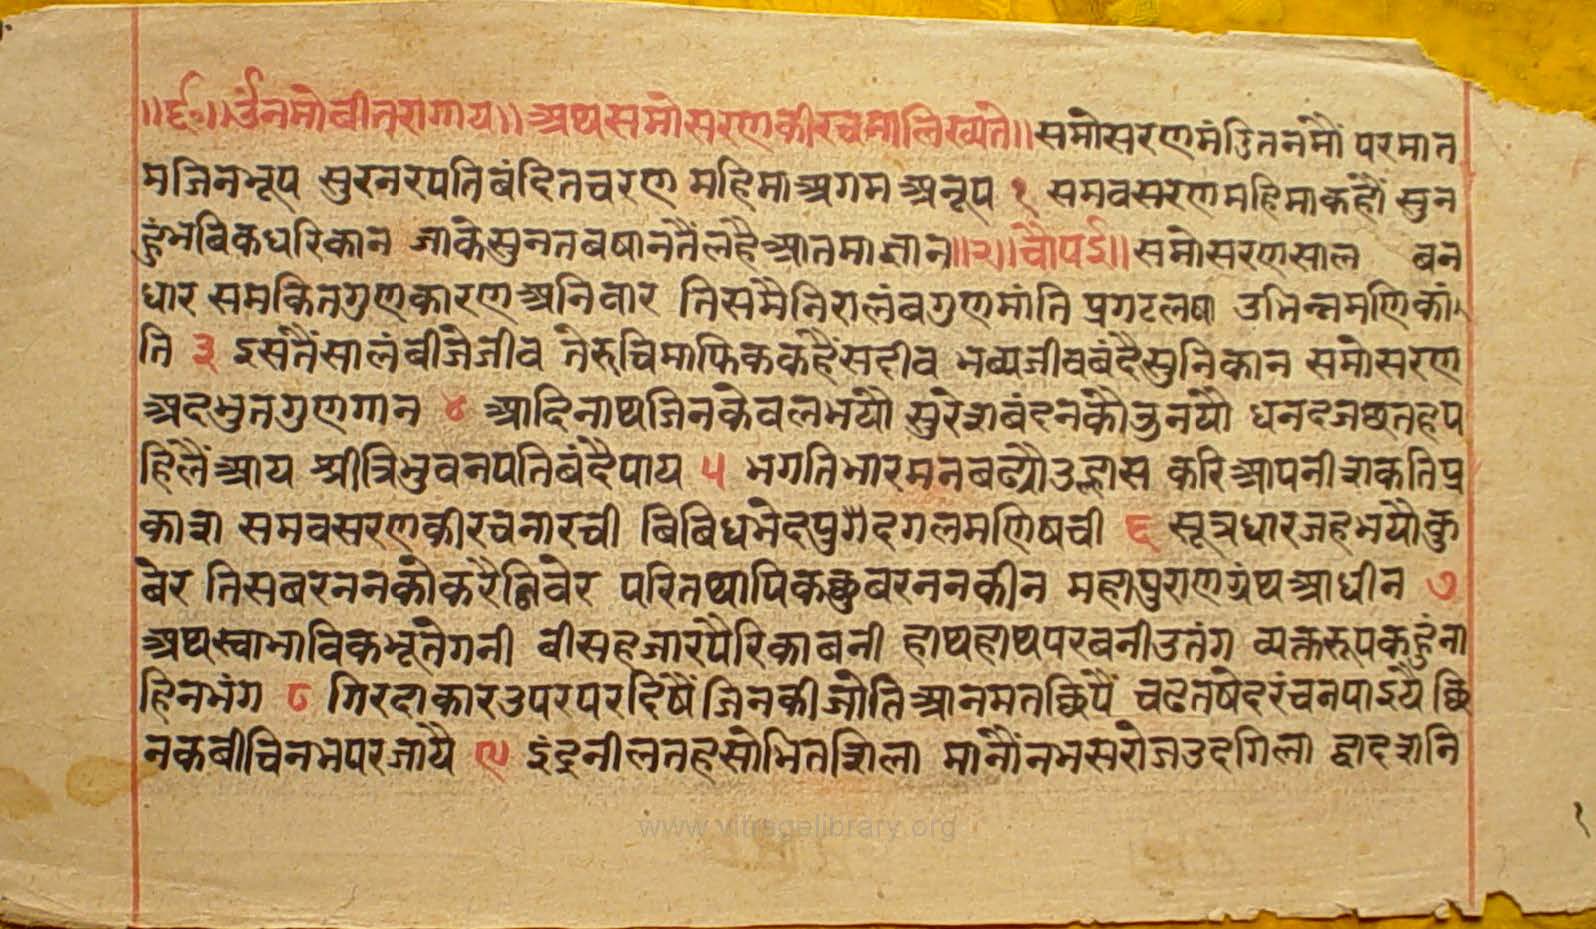 ॥र्द०॥ उँनमोवीतरागाय॥ अथसमोसरणकीरचमालिख्यते॥ समोसरणमंडितनमौं परमात
मजिनभूप सुरनरपतिबंदितचरण महिमाअगमअनूप १ समवसरणमहिमाकहौं सुन
हुंभविकधरिकान जाकेसुनतबषानतैंलहैआतमाज्ञान॥२॥चौपई॥ समोसरणसाल बन
धार समकितगुणकारणअनिवार तिसमैनिरालंबगुणमांति प्रगटलषा उभिन्नमणिकां
ति ३ इसंतैंसालंबीजेजीव तेरुचिमाफिककहैंसदीव भव्यजीवबंदैसुनिकान समोसरण
अदभुतगुणगान ४ आदिनाथजिनकेवलभयौ सुरेशबंदनकौउनयौ धनदजछतहप
हिलैंआय श्रीत्रिभुवनपतिबंदैपाय ५ भगतिभारमनबढ्यौउल्हास करिआपनीशकतिप्र
काश समवसरणकीरचनारची बिबिधभेदपुगैदगलमणिषची ६ सूत्रधारजहभयौकु
बेर तिसबरननकौकरैनिवेर परितथापिकछुबरननकीन महापुराणग्रंथआधीन ७
अथस्वाभाविकभूतेगनी बीसहजारपैरिकाबनी हाथहाथपरबनीउतंग व्यक्तरूपकहुंना
हिनभंग ८ गिरदाकारउपरपरदिषैं जिनकीजोतिआनमतछिपैं चढतषेदरंचनपाइयै छि
नकबीचिनभपरजायै ९ इंद्रनीलतहसोभितशिला मानौंनभसरोजउदगिला द्वादशनि
१
www.vitragelibrary.org